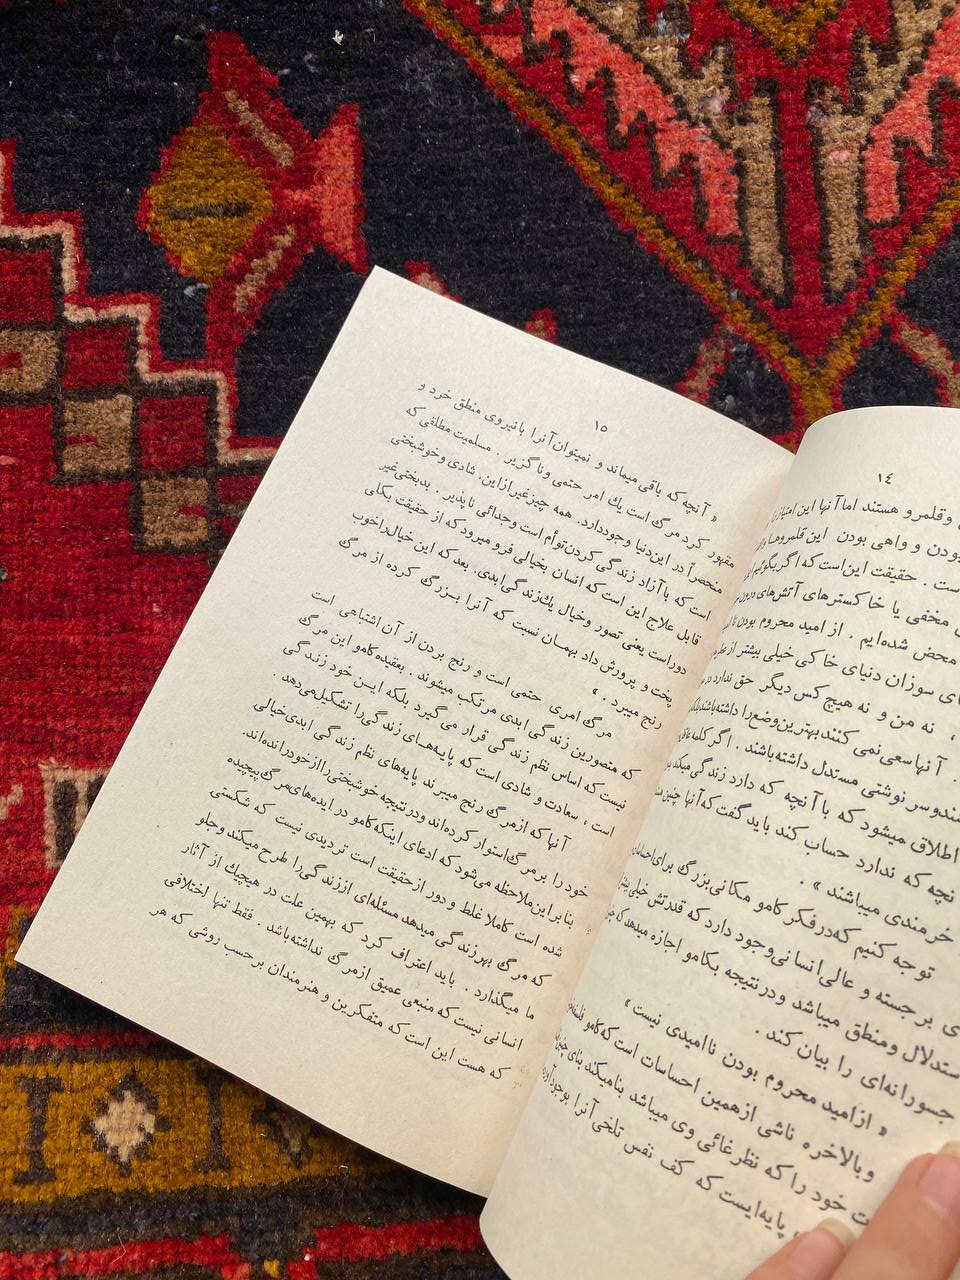 ۱٤
وقلمرو هستند اما آنها این امتیاز را
بودن و واهی بودن این قلمروها
است . حقیقت این‌است که اگر بگوئیم
مخفی یا خاکسترهای آتش‌های درون
محض شده‌ایم . از امید محروم بودن
های سوزان دنیای خاکی خیلی بیشتر از
، نه من و نه هیچ کس دیگر حق ندارد
. آنها سعی نمی کنند بهترین وضع را داشته باشند
سر نوشتی مستدل داشته باشند . اگر کلمه
اطلاق میشود که با آنچه که دارد زندگی میکند
نچه که ندارد حساب کند باید گفت که آنها چنین
خرمندی میباشند » .
توجه کنیم که در فکر کامو مکانی بزرگ برای
ی برجسته و عالی انسانی وجود دارد که قدرتش خیلی
ستدلال و منطق میباشد و در نتیجه بکامو اجازه میدهد که
جسورانه‌ای را بیان کند .
« از امید محروم بودن ناامیدی نیست »
و بالاخره ناشی از همین احساسات است که کامو
ت خود را که نظر غائی وی میباشد بنا میکند بنای
پایه‌ایست که کف نفس تلخی آنرا بوجود
۱۵
« آنچه که باقی میماند و نمیتوان آنرا با نیروی منطق خرد و
مقهور کرد مرگ است یك امر حتمی و ناگزیر . مسلمیت مطلقی که
منحصراً در این دنیا وجود دارد. همه چیز غیر از این، شادی و خوشبختی
است که با آزاد زندگی کردن توأم است وجدائی ناپذیر . بدبختی غیر
قابل علاج این است که انسان بخیالی فرو میرود که از حقیقت بکلی
دور است یعنی تصور و خیال یك زندگی ابدی. بعد که این خیال را خوب
پخت و پرورش داد بهمان نسبت که آنرا بـزرگ کرده از مرگ
رنج میبرد . »
مرگ امری حتمی است و رنج بردن از آن اشتباهی است
که متصورین زندگی ابدی مرتکب میشوند . بعقیده کامو این مرگ
نیست که اساس نظم زندگی قرار می گیرد بلکه ایـن خود زندگی
است ، سعادت و شادی است که پایه‌هـای زندگی را تشکیل می‌دهد .
آنها که از مرگ رنج میبرند پایه‌های نظم زندگی ابدی خیالی
خود را بر مرگ استوار کرده‌اند و در نتیجه خوشبختی را از خود رانده‌اند.
بنا بر این ملاحظه می‌شود که ادعای اینکه کامو در ایده‌های مرگ پیچیده
شده است کاملا غلط و دور از حقیقت است تردیدی نیست که شکستی
که مرگ بهر زندگی میدهد مسئله‌ای از زندگی را طرح میکند و جلو
ما میگذارد . باید اعتراف کرد که بهمین علت در هیچیك از آثار
انسانی نیست که منبعی عمیق از مرگ نداشته باشد . فقط تنها اختلافی
که هست این است که متفکرین و هنرمندان بر حسب روشی که هر